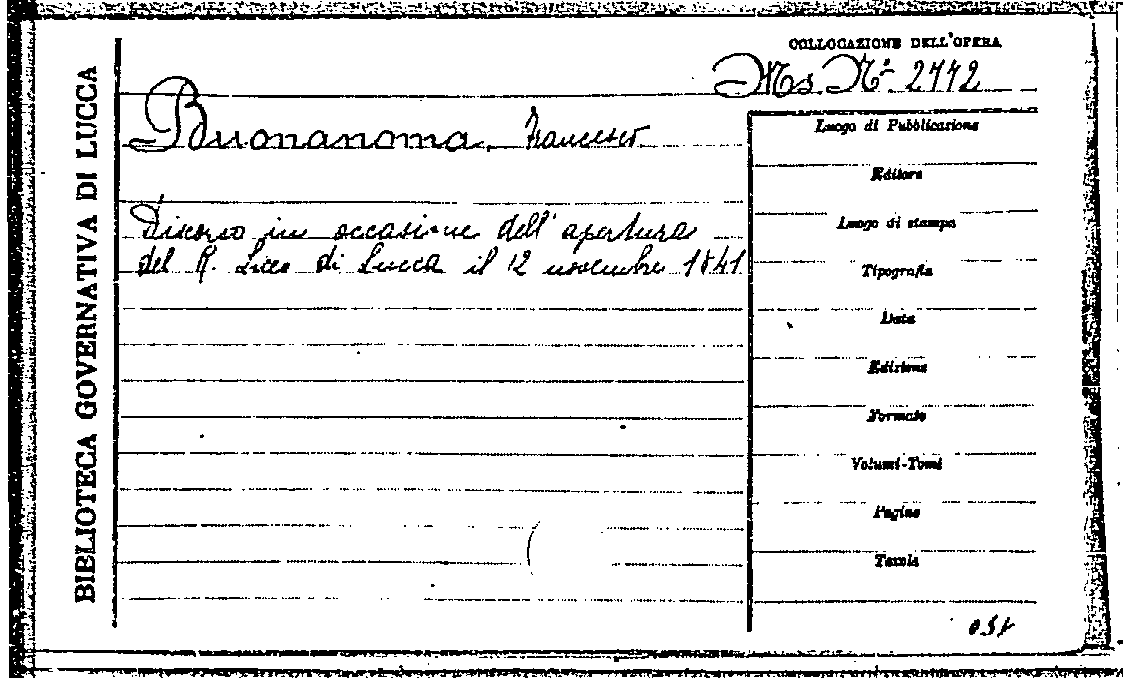 BIBLIOTECA GOVERNATIVA DI LUCCA
COLLOCAZIONE DELL'OPERA
Ms. N.º 2442
Buonanoma, Francesco
Discorso in occasione dell'apertura
del R. Liceo di Lucca il 12 novembre 1841
Luogo di Pubblicazione
Editore
Luogo di stampa
Tipografia
Data
Edizione
Formato
Volumi-Tomi
Pagine
Tavole